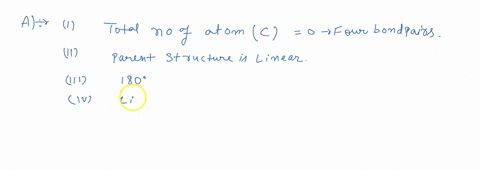 A) :→ (i) Total no of atom (C) = 0 → Four bond pairs.
(ii) Parent Structure is Linear.
(iii) 180°
(iv) Li